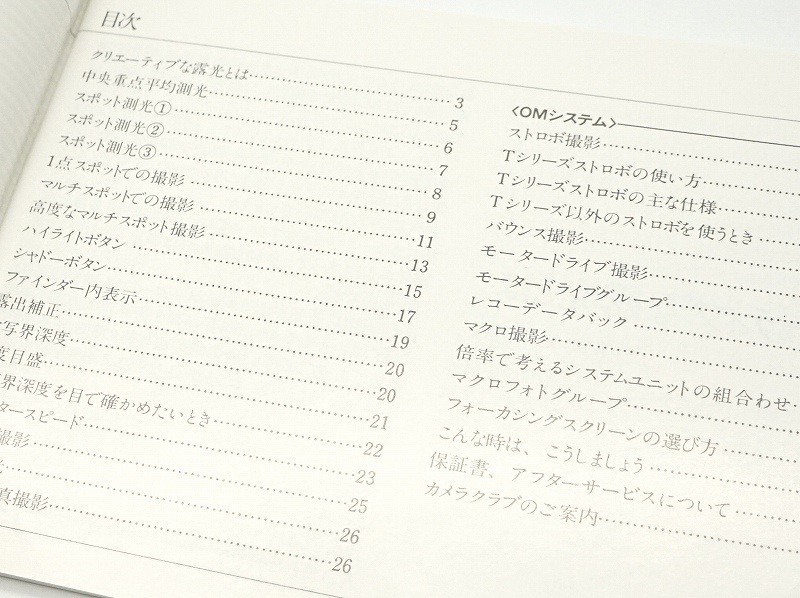 目次
クリエーティブな露光とは……3
中央重点平均測光……5
スポット測光①……6
スポット測光②……7
スポット測光③……8
1点スポットでの撮影……9
マルチスポットでの撮影……11
高度なマルチスポット撮影……13
ハイライトボタン……15
シャドーボタン……17
ファインダー内表示……19
露出補正……20
写界深度……20
度目盛……21
界深度を目で確かめたいとき……22
タースピード……23
撮影……25
……26
真撮影……26
〈OMシステム〉
ストロボ撮影……
Tシリーズストロボの使い方……
Tシリーズストロボの主な仕様……
Tシリーズ以外のストロボを使うとき……
バウンス撮影……
モータードライブ撮影……
モータードライブグループ……
レコーデータバック……
マクロ撮影……
倍率で考えるシステムユニットの組合わせ……
マクロフォトグループ……
フォーカシングスクリーンの選び方……
こんな時は、こうしましょう……
保証書、アフターサービスについて……
カメラクラブのご案内……